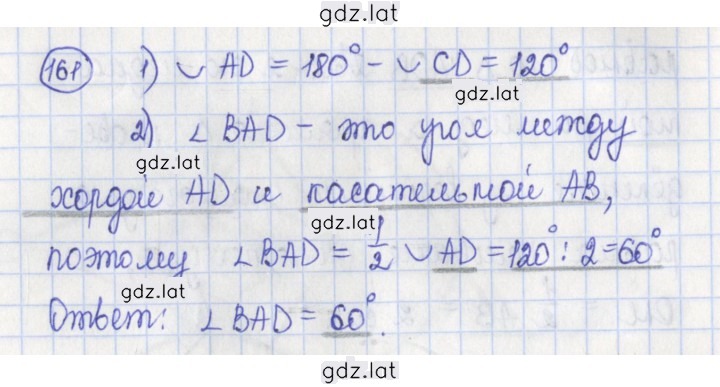 gdz.lat
161 1) ◡ AD = 180° - ◡ CD = 120°
gdz.lat
2) ∠ BAD - это угол между
gdz.lat
хордой AD и касательной AB,
gdz.lat
поэтому ∠ BAD = 1/2 ◡ AD = 120° : 2 = 60°
gdz.lat
Ответ: ∠ BAD = 60°.
gdz.lat